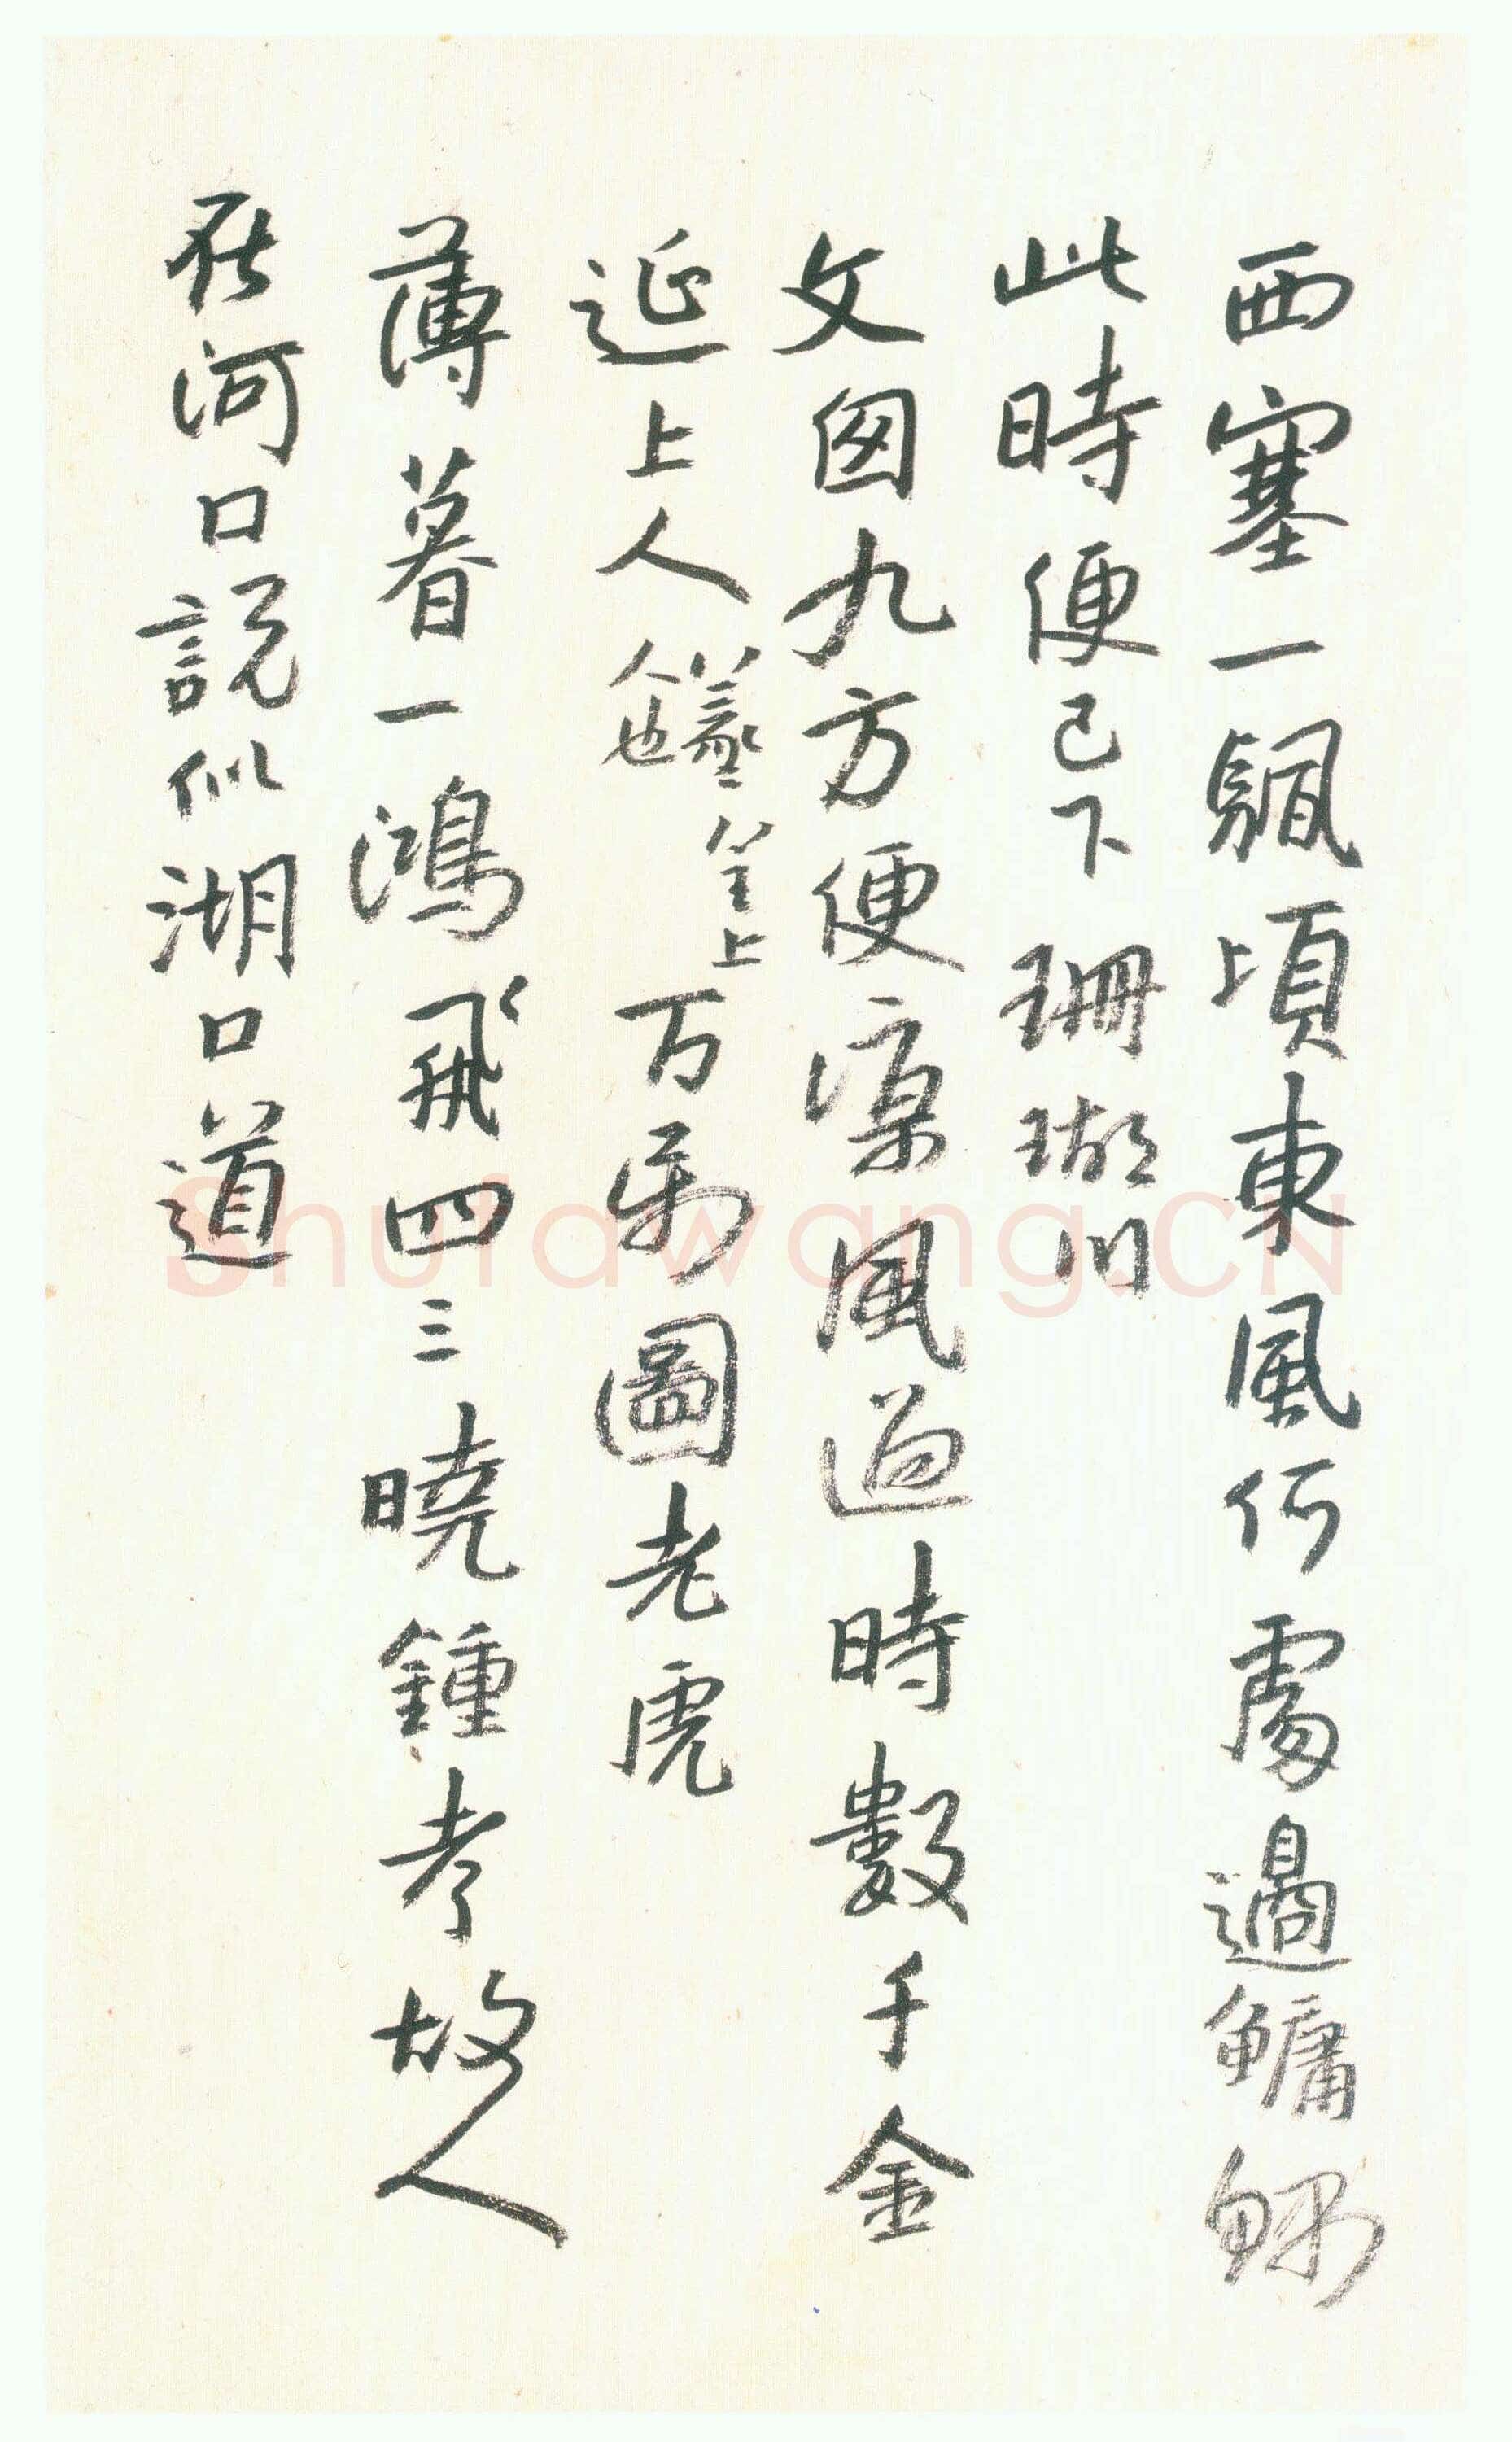 西塞一飄頃東風何處過鱅鰤
此時便已下珊瑚川
文囪九方便涼風過時數千金
延上人人也羲皇上百禹圖老虎
薄暮一鴻飛四三曉鍾考故人
在河口說似湖口道
Shufawang.CN